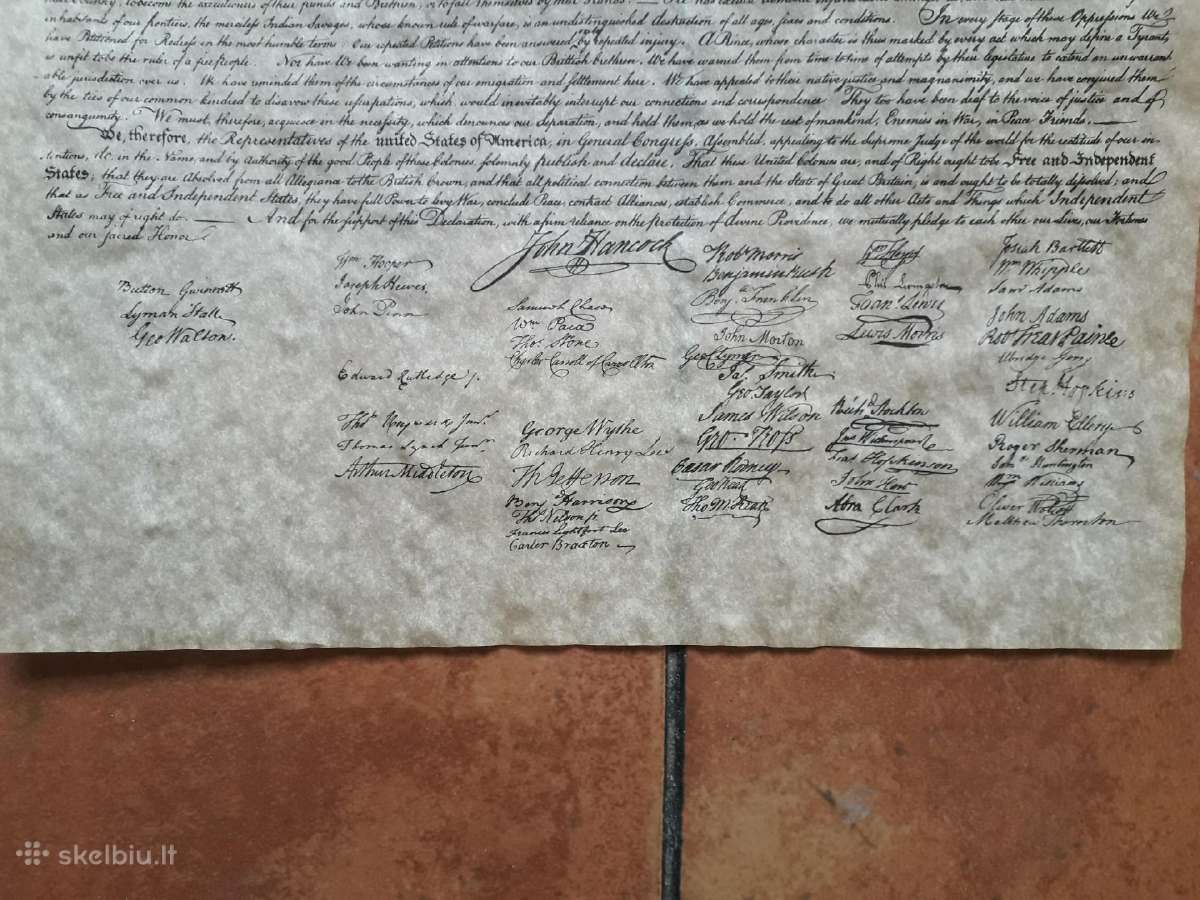 inhabitants of our frontiers, the merciless Indian Savages, whose known rule of warfare, is an undistinguished destruction of all ages, sexes and conditions. In every stage of these Oppressions We
have Petitioned for Redress in the most humble terms: Our repeated Petitions have been answered by repeated injury. A Prince, whose character is thus marked by every act which may define a Tyrant,
is unfit to be the ruler of a free people. Nor have We been wanting in attentions to our Brittish brethren. We have warned them from time to time of attempts by their legislature to extend an unwarrant
able jurisdiction over us. We have reminded them of the circumstances of our emigration and settlement here. We have appealed to their native justice and magnanimity, and we have conjured them
by the ties of our common kindred to disavow these usurpations, which, would inevitably interrupt our connections and correspondence. They too have been deaf to the voice of justice and of
consanguinity. We must, therefore, acquiesce in the necessity, which denounces our Separation, and hold them, as we hold the rest of mankind, Enemies in War, in Peace Friends. —
We, therefore, the Representatives of the united States of America, in General Congress, Assembled, appealing to the Supreme Judge of the world for the rectitude of our in-
tentions, do, in the Name, and by Authority of the good People of these Colonies, solemnly publish and declare, That these United Colonies are, and of Right ought to be Free and Independent
States; that they are Absolved from all Allegiance to the British Crown, and that all political connection between them and the State of Great Britain, is and ought to be totally dissolved; and
that as Free and Independent States, they have full Power to levy War, conclude Peace, contract Alliances, establish Commerce, and to do all other Acts and Things which Independent
States may of right do. — And for the support of this Declaration, with a firm reliance on the protection of divine Providence, we mutually pledge to each other our Lives, our Fortunes
and our sacred Honor.
Button Gwinnett
Lyman Hall
Geo Walton.
Wm Hooper
Joseph Hewes,
John Penn
Edward Rutledge
Thos Heyward Junr.
Thomas Lynch Junr.
Arthur Middleton
John Hancock
Samuel Chase
Wm Paca
Thos Stone
Charles Carroll of Carrollton
George Wythe
Richard Henry Lee
Th Jefferson
Benj Harrison
Thos Nelson jr.
Francis Lightfoot Lee
Carter Braxton
Robt Morris
Benjamin Rush
Benj Franklin
John Morton
Geo Clymer
Jas Smith
Geo Taylor
James Wilson
Geo. Ross
Caesar Rodney
Geo Read
Tho M:Kean
Phil Livingston
Frans Lewis
Lewis Morris
Richd Stockton
Jno Witherspoon
Fras Hopkinson
John Hart
Abra Clark
Josiah Bartlett
Wm Whipple
Saml Adams
John Adams
Robt Treat Paine
Elbridge Gerry
Step. Hopkins
William Ellery
Roger Sherman
Saml Huntington
Wm Williams
Oliver Wolcott
Matthew Thornton
skelbiu.lt